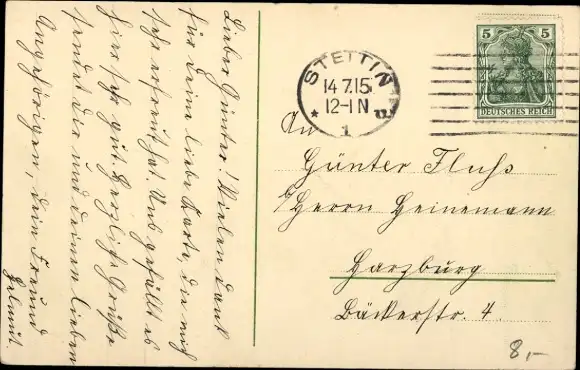 Lieber Günter! Vielen Dank
für Deine liebe Karte, die mich
sehr erfreut hat. Uns gefällt es
hier sehr gut. Herzliche Grüße
sendet dir und deinen lieben
Angehörigen, dein Freund
Helmut.
STETTIN
14.7.15.
12-1 N
* 1
5 5
DEUTSCHES REICH
An
Günter Fluhs
b/Herrn Heinemann
Harzburg
Bäckerstr. 4.
8,-